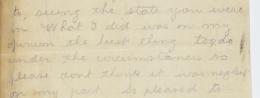 to, seeing the state you were
in What I did was on my
opinion the best thing to do
under the circumstances so
please dont think it was neglect
on my part So pleased to